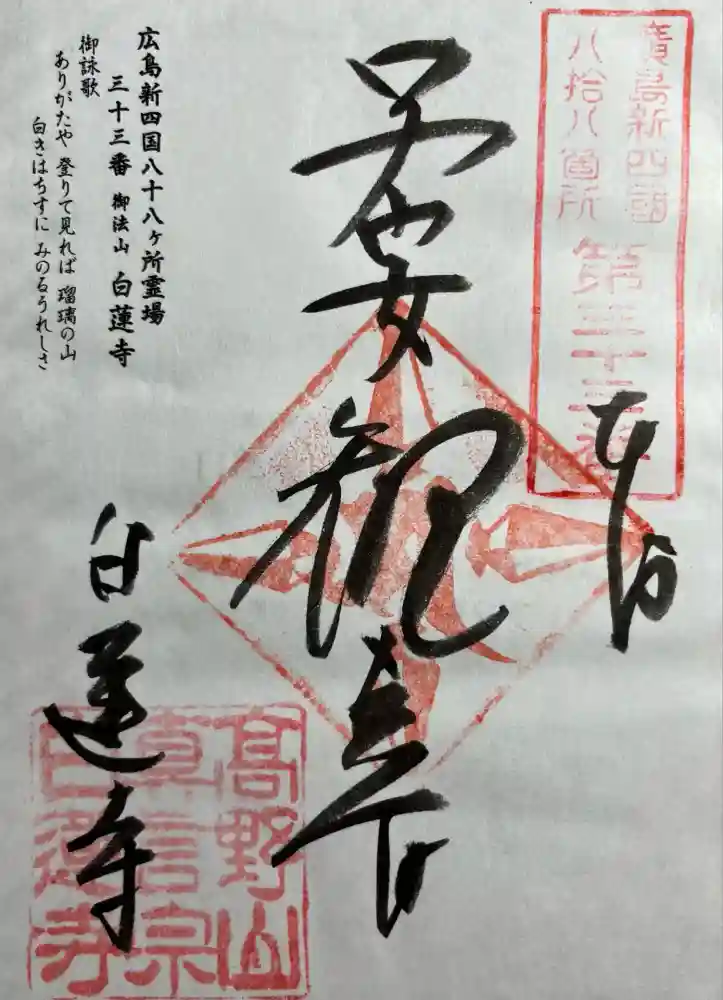 廣島新四國
八拾八箇所
第三十三番
奉拝
聖観音
白蓮寺
高野山
真言宗
白蓮寺
広島新四国八十八ヶ所霊場
三十三番 御法山 白蓮寺
御詠歌
ありがたや 登りて見れば 瑠璃の山
白きはちすに みのるうれしさ